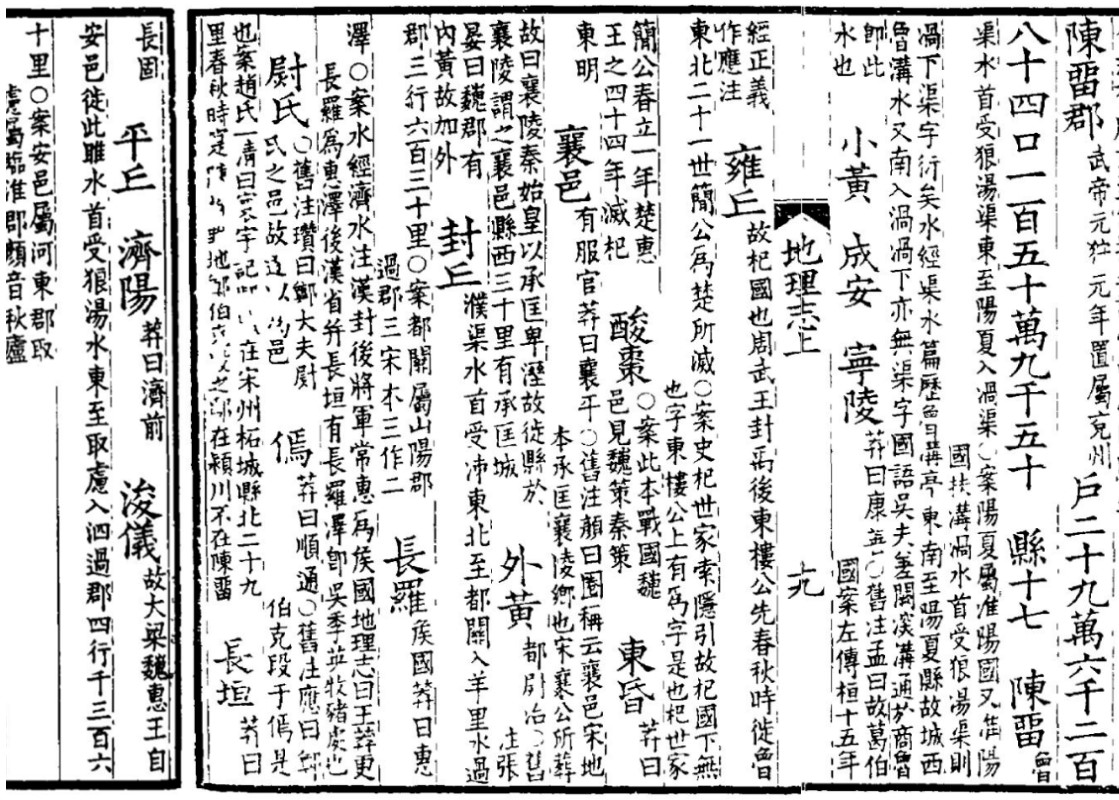 陳畱郡 武帝元狩元年置屬兖州 戶二十九萬六千二百
八十四口一百五十萬九千五十 縣十七 陳畱 魯
渠水首受狼湯渠東至陽夏入渦渠○案陽夏屬淮陽國又淮陽
國扶溝渦水首受狼湯渠則
渦下渠字衍矣水經渠水篇歷魯溝亭東南至陽夏縣故城西
魯溝水又南入渦渦下亦無渠字國語吳夫差闕深溝通於商魯
卽此
水也 小黃 成安 寧陵 莽曰康善○舊注孟曰故葛伯
國案左傳桓十五年
地理志上 十九
經正義
作應注 雍丘 故杞國也周武王封禹後東樓公先春秋時徙魯
東北二十一世簡公爲楚所滅○案史杞世家索隱引故杞國下無
也字東樓公上有爲字是也杞世家
簡公春立一年楚惠
王之四十四年滅杞 酸棗 ○案此本戰國魏
邑見魏策秦策 東昏 莽曰
東明 襄邑 有服官莽曰襄平○舊注顏曰圈稱云襄邑宋地
本承匡襄陵鄉也宋襄公所葬
故曰襄陵秦始皇以承匡卑溼故徙縣於
襄陵謂之襄邑縣西三十里有承匡城 外黃 都尉治○舊
注張
晏曰魏郡有
內黃故加外 封丘 濮渠水首受泲東北至都關入羊里水過
郡三行六百三十里○案都關屬山陽郡
過郡三宋本三作二 長羅 侯國莽曰惠
澤○案水經濟水注漢封後將軍常惠爲侯國地理志曰王莽更
長羅爲惠澤後漢省幷長垣有長羅澤卽吳季英牧豬處也
尉氏 ○舊注瓚曰鄭大夫尉
氏之邑故遂以爲邑 傿 莽曰順通○舊注應曰鄭
伯克段于傿是
也案趙氏一清曰寰宇記 在宋州柘城縣北二十九
里春秋時 地鄭伯克段之鄢在潁川不在陳畱 長垣 莽曰
長固 平丘 濟陽 莽曰濟前 浚儀 故大梁魏惠王自
安邑徙此睢水首受狼湯水東至取慮入泗過郡四行千三百六
十里○案安邑屬河東郡取
慮屬臨淮郡顏音秋廬